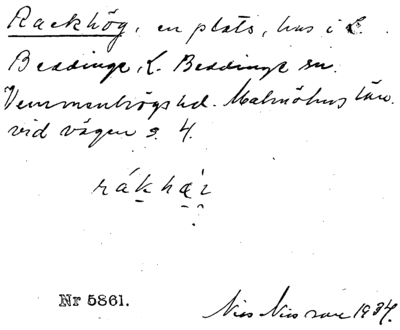 Rackhög, en plats, hus i L.
Beddinge, L. Beddinge sn.
Vemmenhögs hd. Malmöhus län.
vid vägen s. 4.
rákhái
Nr 5861.
Nils Nilsson 1934.